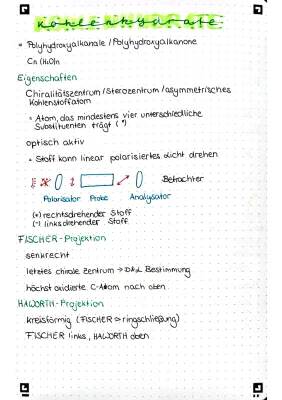 Kohlenhydrate
= Polyhydroxyalkanale / Polyhydroxyalkanone
Cn (H₂O)n
Eigenschaften
Chiralitätszentrum / Sterozentrum / asymmetrisches
Kohlenstoffatom
= Atom, das mindestens vier unterschiedliche
Substituenten trägt (*)
optisch aktiv
= Stoff kann linear polarisiertes Licht drehen
Betrachter
Polarisator Probe Analysator
(+) rechtsdrehender Stoff
(-) linksdrehender Stoff
FISCHER-Projektion
senkrecht
letztes chirale Zentrum → D&L Bestimmung
höchst oxidierte C-Atom nach oben
HAWORTH-Projektion
kreisförmig (FISCHER ⇒ ringschließung)
FISCHER links, HAWORTH oben